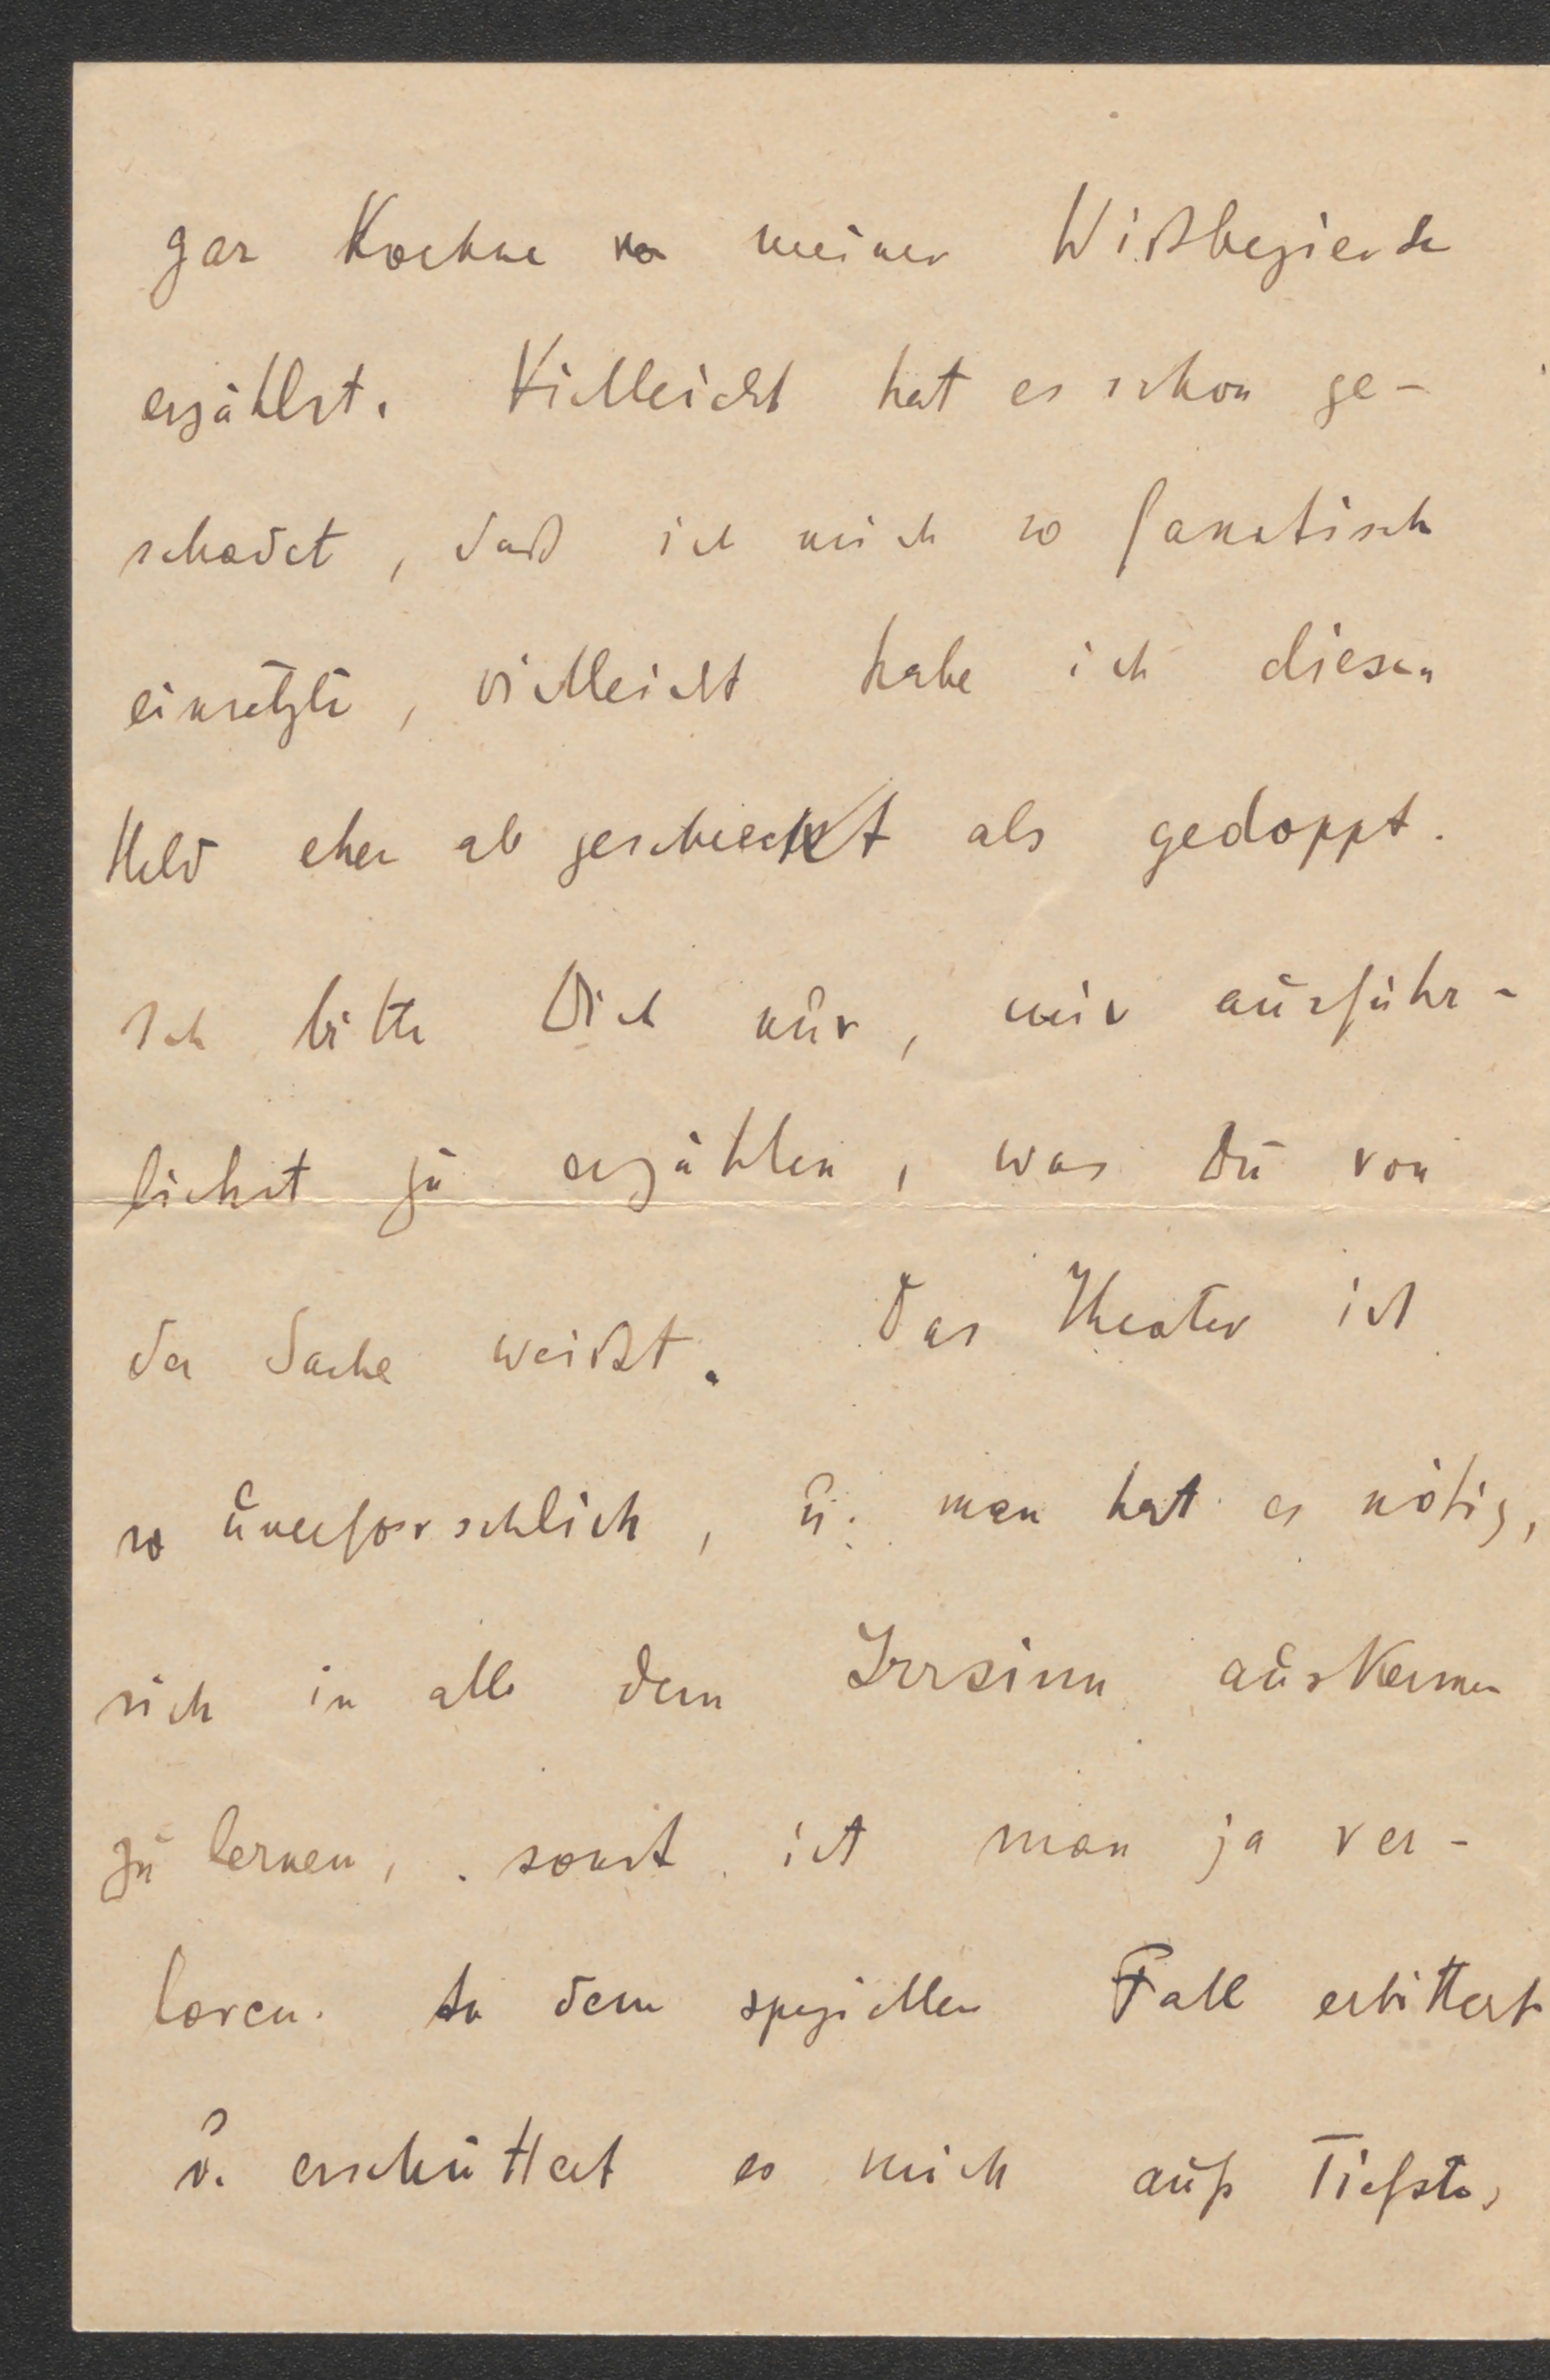 gar Kortner von meiner Wißbegierde
erzählst. Vielleicht hat es schon ge-
schadet, daß ich mich so fanatisch
einsetzte, vielleicht habe ich diesen
Held eher abgeschreckt als gedoppt.
Ich bitte Dich nur, mir ausführ-
lichst zu erzählen, was Du von
der Sache weißt. Das Theater ist
so unerforschlich, u. man hat es nötig,
sich in all dem Irrsinn auskennen
zu lernen, sonst ist man ja ver-
loren. In dem speziellen Fall erbittert
u. erschüttert es mich aufs Tiefste,